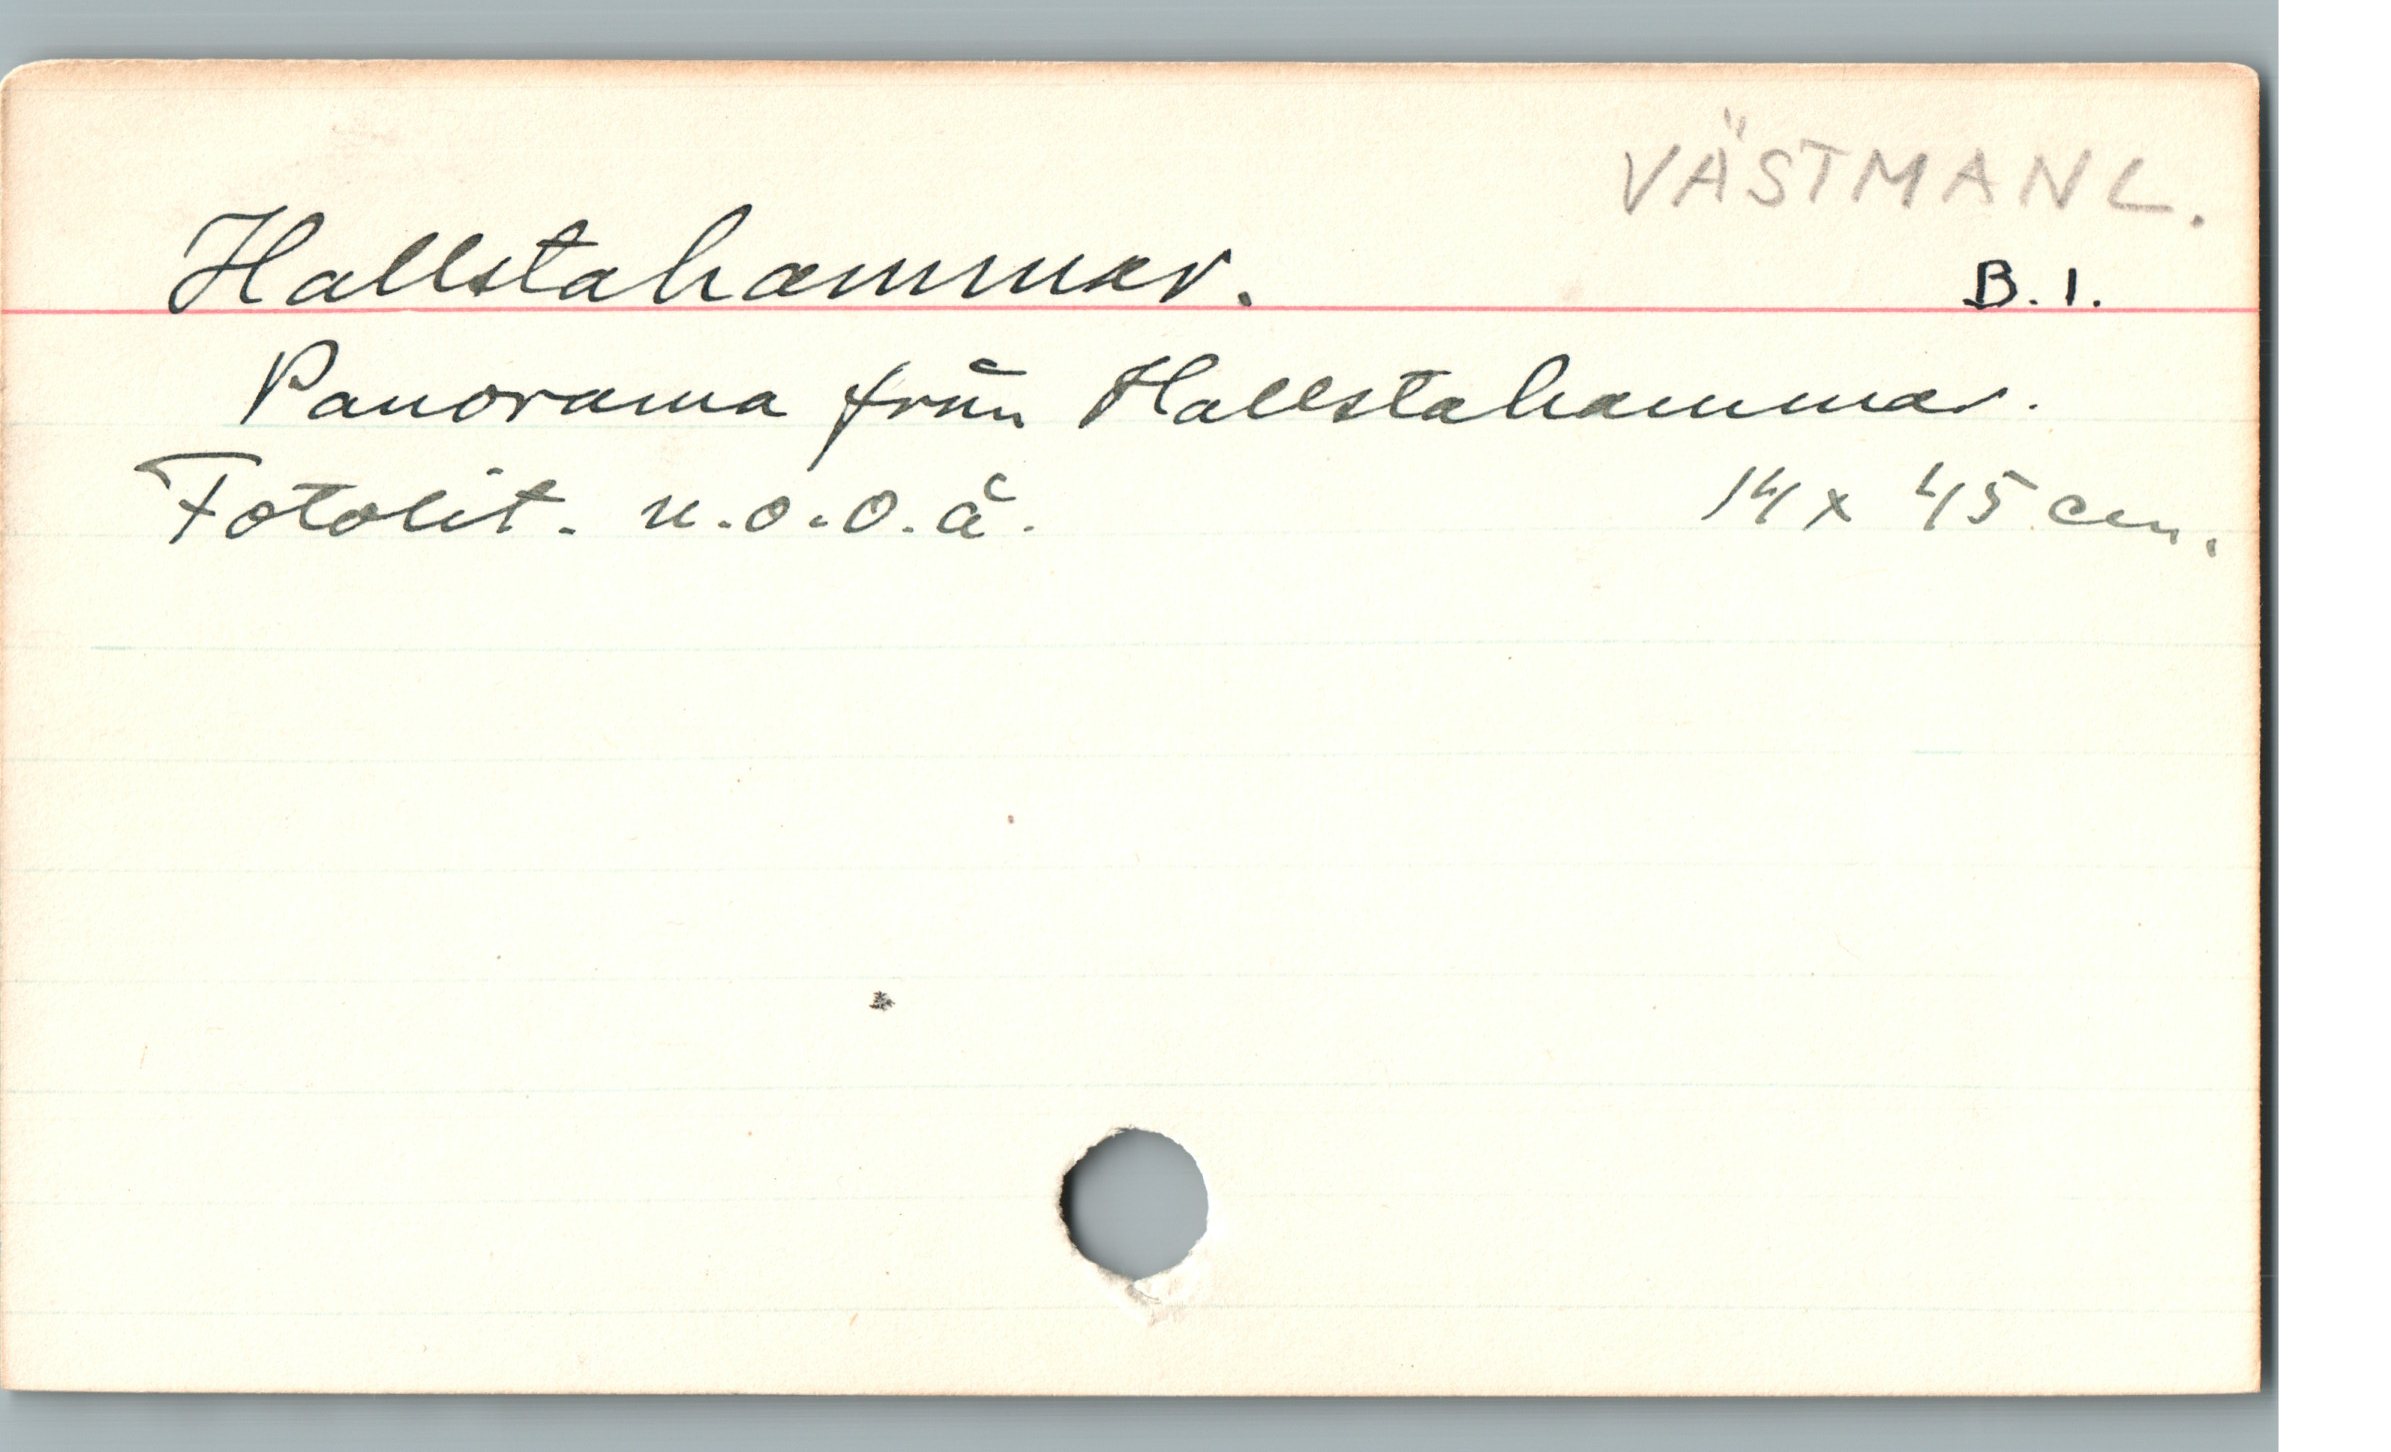 VÄSTMANL.
Hallstahammar. B. 1.
Panorama från Hallstahammar.
Fotolit. u.o.o.å. 14 x 45 cm.